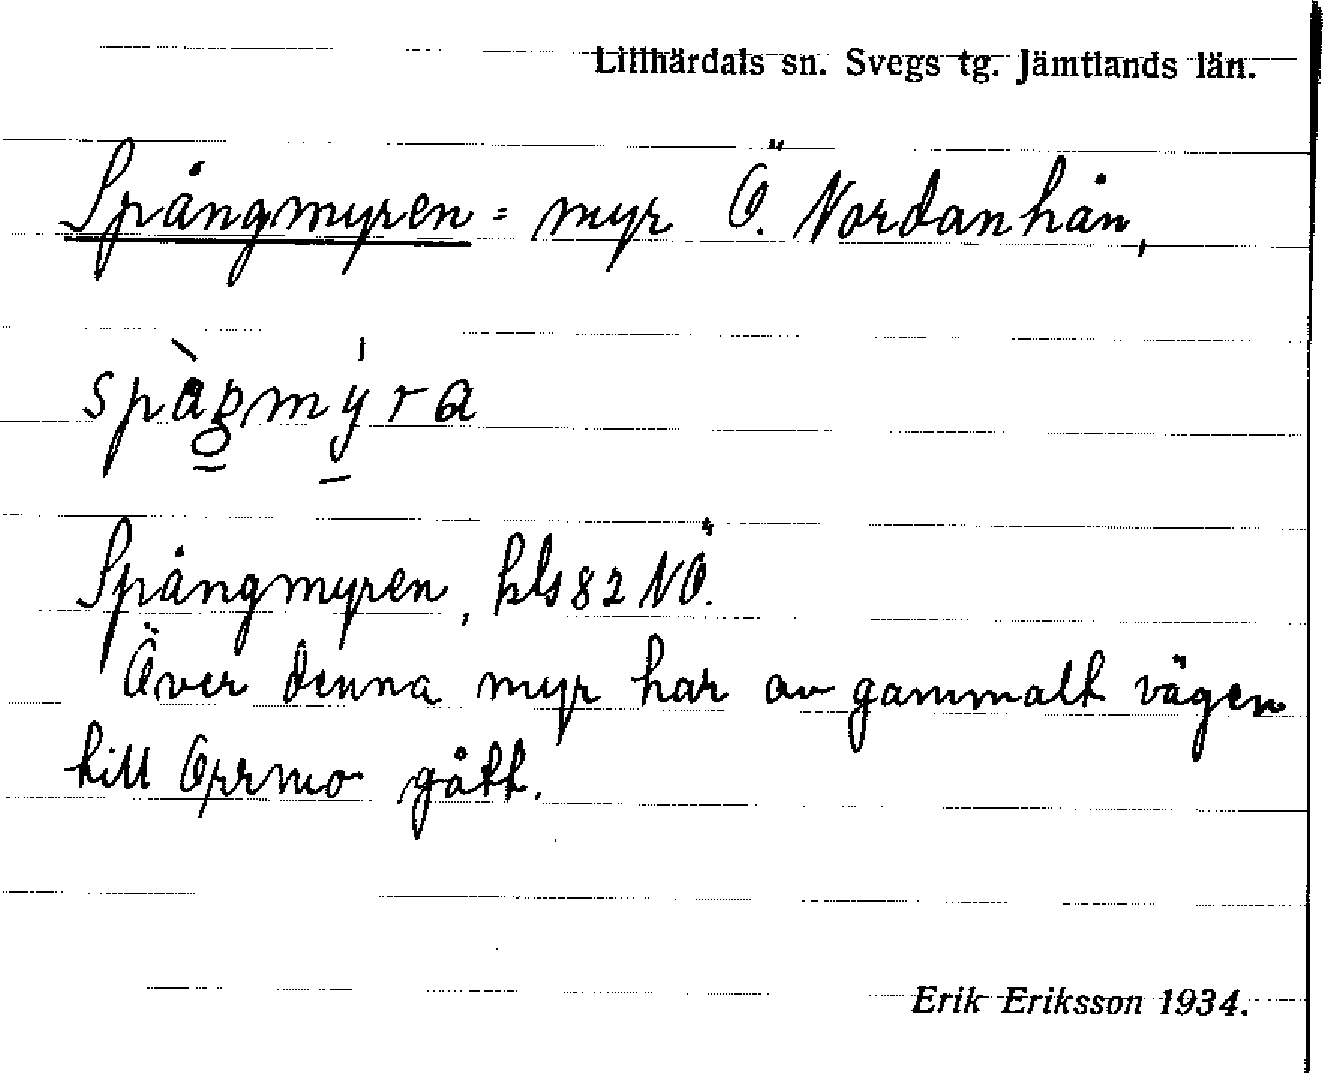 Lillhärdals sn. Svegs tg. Jämtlands län.
Spångmyren = myr Ö. Nordanhån,
Spångmyren, kls 82 NÖ.
Över denna myr har av gammalt vägen
till Orrmo gått.
Erik Eriksson 1934.